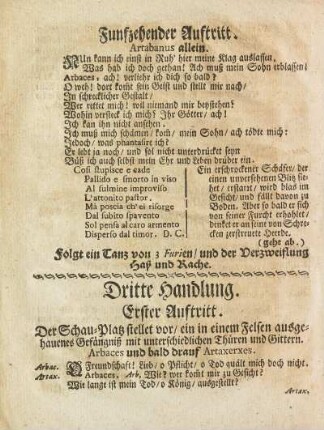 Funfzehender Auftritt.
Artabanus allein.
NUn kann ich einst in Ruh' hier meine Klag auslassen,
Was hab ich doch gethan! Ach muß mein Sohn erblassen!
Arbaces, ach! verliehr ich dich so bald?
O weh! dort komt sein Geist und stellt mir nach/
In schrecklicher Gestalt/
Wer rettet mich! will niemand mir beystehen?
Wohin versteck ich mich? Ihr Götter/ ach!
Ich kan ihn nicht ansehen.
Ich muß mich schämen/ kom/ mein Sohn/ ach tödte mich:
Jedoch/ was phantasire ich?
Er lebt ja noch/ und sol nicht unterdrückt seyn
Büß ich auch selbst mein Ehr und Leben drüber ein.
Così stupisce e cade
Pallido e smorto in viso
Al fulmine improviso
L'attonito pastor.
Mà poscia ch'ei risorge
Dal subito spavento
Sol pensa al caro armento
Disperso dal timor. D. C.
Ein erschrockener Schäfer/ der
einen unversehenen Blitz siehet/
erstarrt/ wird blaß im
Gesicht/ und fällt davon zu
Boden. Aber so bald er sich
von seiner Furcht erhohlet/
dencket er an seine von Schrecken
zerstreuete Heerde.
(geht ab.)
Folgt ein Tanz von 3 Furien/ und der Verzweiflung
Haß und Rache.
Dritte Handlung.
Erster Auftritt.
Der Schau-Platz stellet vor/ ein in einem Felsen ausgehauenes
Gefängniß mit unterschiedlichen Thüren und Gittern.
Arbaces und bald drauf Artaxerxes.
Arbac. O Freundschaft! Lieb/ o Pflicht/ o Tod quält mich doch nicht.
Artax. Arbaces, Arb. Wie? wer komt mir zu Gesicht?
Wie langt ist mein Tod/ o König/ ausgestellt?
Artax.